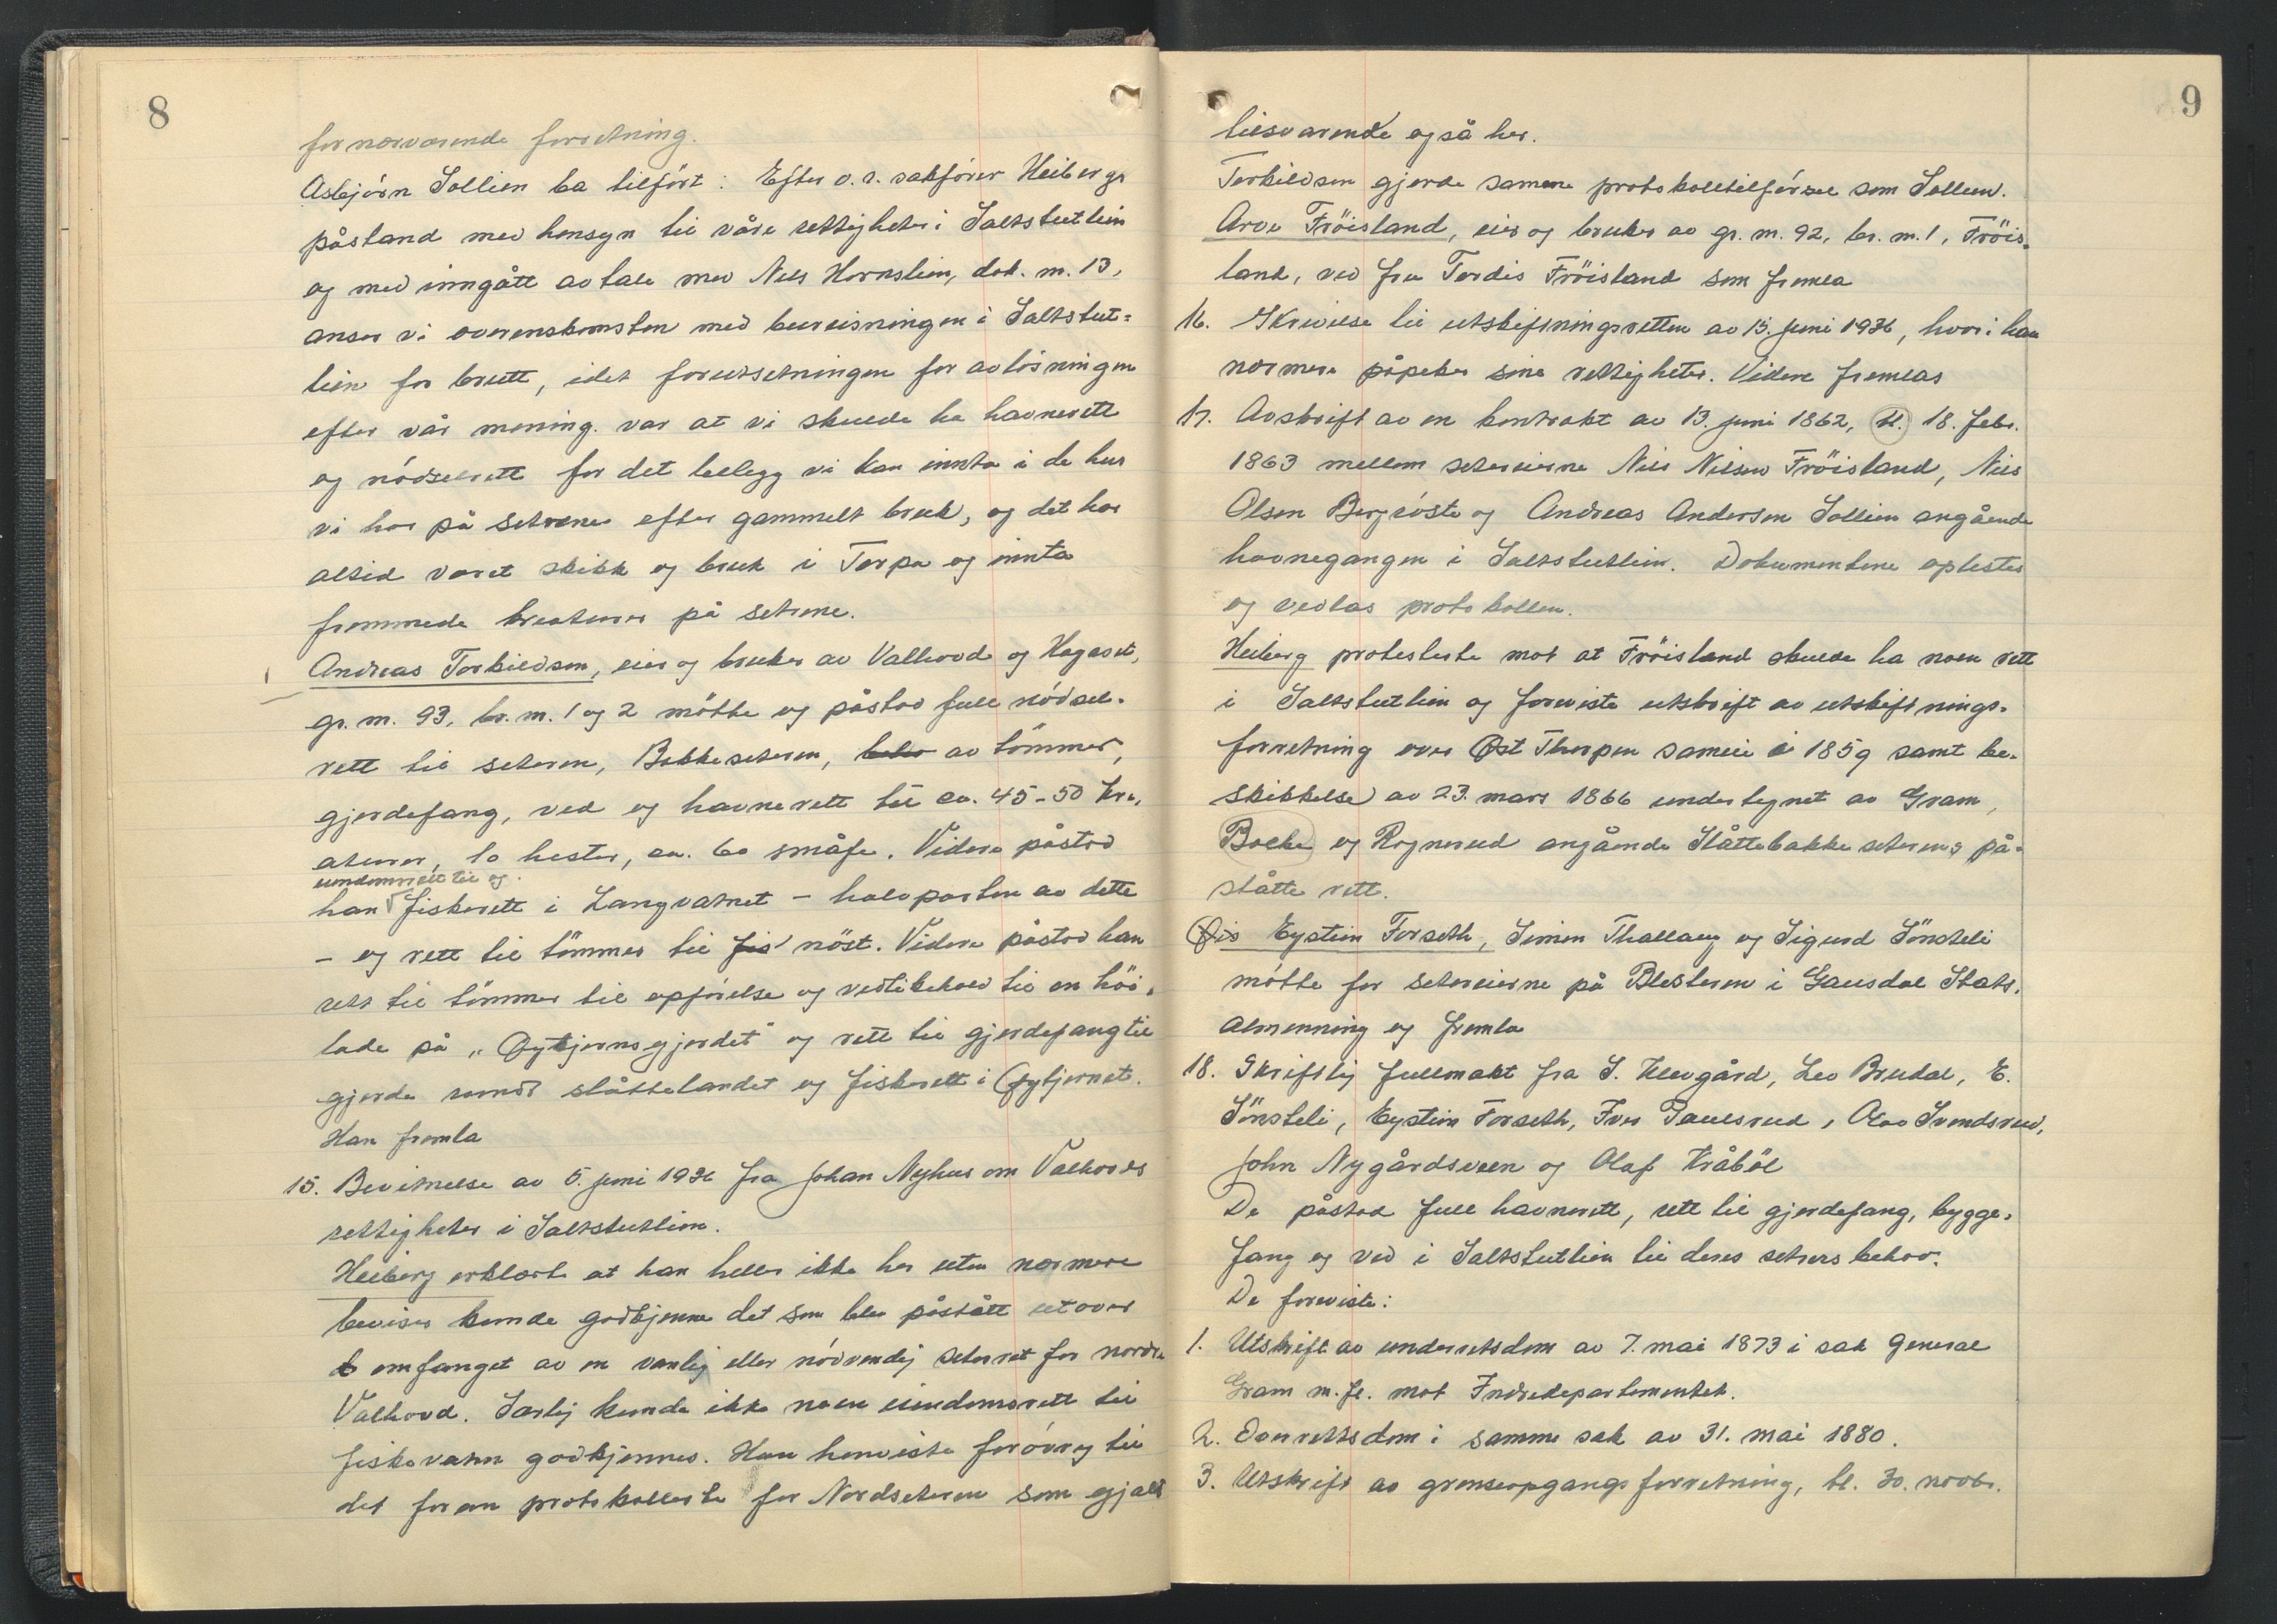 8
for nærværende forretning.
Asbjörn Sollien ba tilfört: Efter o. r. sakförer Heibergs
påstand med hensyn til våre rettigheter i Saltstutlien
og med inngått avtale med Nils Hornslien, dok. nr. 13,
anser vi overenskomsten med bureisningen i Saltstut=
lien for brutt, idet forutsetningen for avlösningen
efter vår mening. var at vi skulde ha havnerett
og nödselrett for det belegg vi kan innta i de hus
vi har på setrene efter gammelt bruk, og det har
altid været skikk og bruk i Torpa og innta
fremmede kreaturer på setrene.
Andreas Torkildsen, eier og bruker av Valhovd og Hagaset,
gr. nr. 93, br. nr. 1 og 2 mötte og påstod full nödsel-
rett til seteren, Bakkeseteren, av tömmer,
gjerdefang, ved og havnerett til ca. 45-50 kre-
aturer, 10 hester, ca. 60 småfe. Videre påstod
eiendomsrett til og
han fiskerett i Langvatnet – halvparten av dette
– og rett til tömmer til fis nöst. Videre påstod han
rett til tömmer til opförelse og vedlikehold til en höi-
lade på "Øytjernsgjerdet" og rett til gjerdefang til
gjerde rundt slåttelandet og fiskerett i Øytjernet.
Han fremla
15. Bevitnelse av 5. juni 1936 fra Johan Nyhus om Valhovds
rettigheter i Saltstutlien.
Heiberg erklærte at han heller ikke her uten nærmere
beviser kunde godkjenne det som blev påstått utover
omfanget av en vanlig eller nödvendig seterret for nordre
Valhovd. Særlig kunde ikke noen eiendomsrett til
fiskevann godkjennes. Han henviste forövrig til
det foran protokollerte for Nordseteren som gjalt
9
tilsvarende også her.
Torkildsen gjorde samme protokolltilförsel som Sollien.
Arve Fröisland, eier og bruker av gr. nr. 92, br. nr. 1, Fröis-
land, ved fru Tordis Fröisland som fremla
16. Skrivelse til utskiftningsretten av 15. juni 1936, hvori han
nærmere påpeker sine rettigheter. Videre fremlas
17. Avskrift av en kontrakt av 13. juni 1862, tl. 18. febr.
1863 mellem setereierne Nils Nilsen Fröisland, Nils
Olsen Bergröste og Andreas Andersen Sollien angående
havnegangen i Saltstutlien. Dokumentene oplestes
og vedlas protokollen.
Heiberg protesterte mot at Fröisland skulde ha noen rett
i Saltstutlien og foreviste utskrift av utskiftnings-
forretning over Øst Thorpen sameie i 1859 samt be-
skikkelse av 23. mars 1866 undertegnet av Gram,
og Rognerud angående Slåttebakkeseterens på-
ståtte rett.
Eystein Forseth, Simen Thallaug og Sigurd Sönsteli
mötte for setereierne på Blesteren i Gausdal Stats-
almenning og fremla
18. Skriftlig fullmakt fra S. Ullvgård, Leo Brudal, E.
Sönsteli, Eystein Forseth, Iver Paulsrud, Olav Svendsrud,
John Nygårdsveen og Olaf Kråböl
De påstod full havnerett, rett til gjerdefang, bygge-
fang og ved i Saltstutlien til deres setrers behov.
De foreviste:
1. Utskrift av underretsdom av 7. mai 1873 i sak General
Gram m. fl. mot Indredepartementet.
2. Overrettsdom i samme sak av 31. mai 1880.
3. Utskrift av grenseopgangsforretning, tl. 30. novbr.